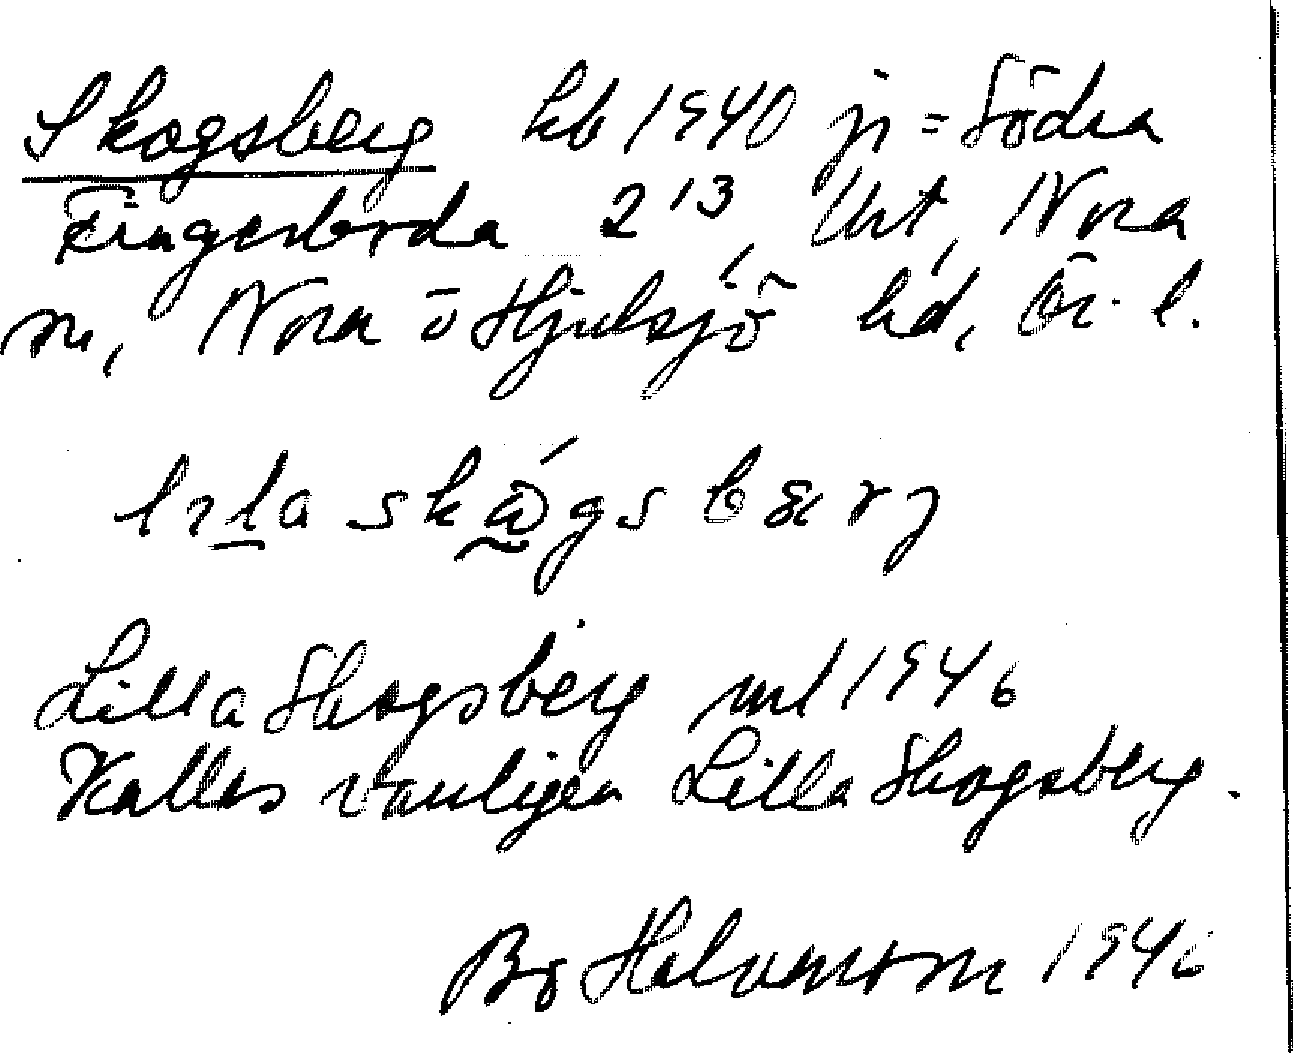 Skogsberg kb 1940 ji = Södra
Fingerboda 2¹³, Urt, Nora
sn, Nora o Hjulsjö hd, Ör. l.
lɩla skǻgsbærj
Lilla Skogsberg ml 1946
Kallas vanligen Lilla Skogsberg.
Bo Halvarson 1946